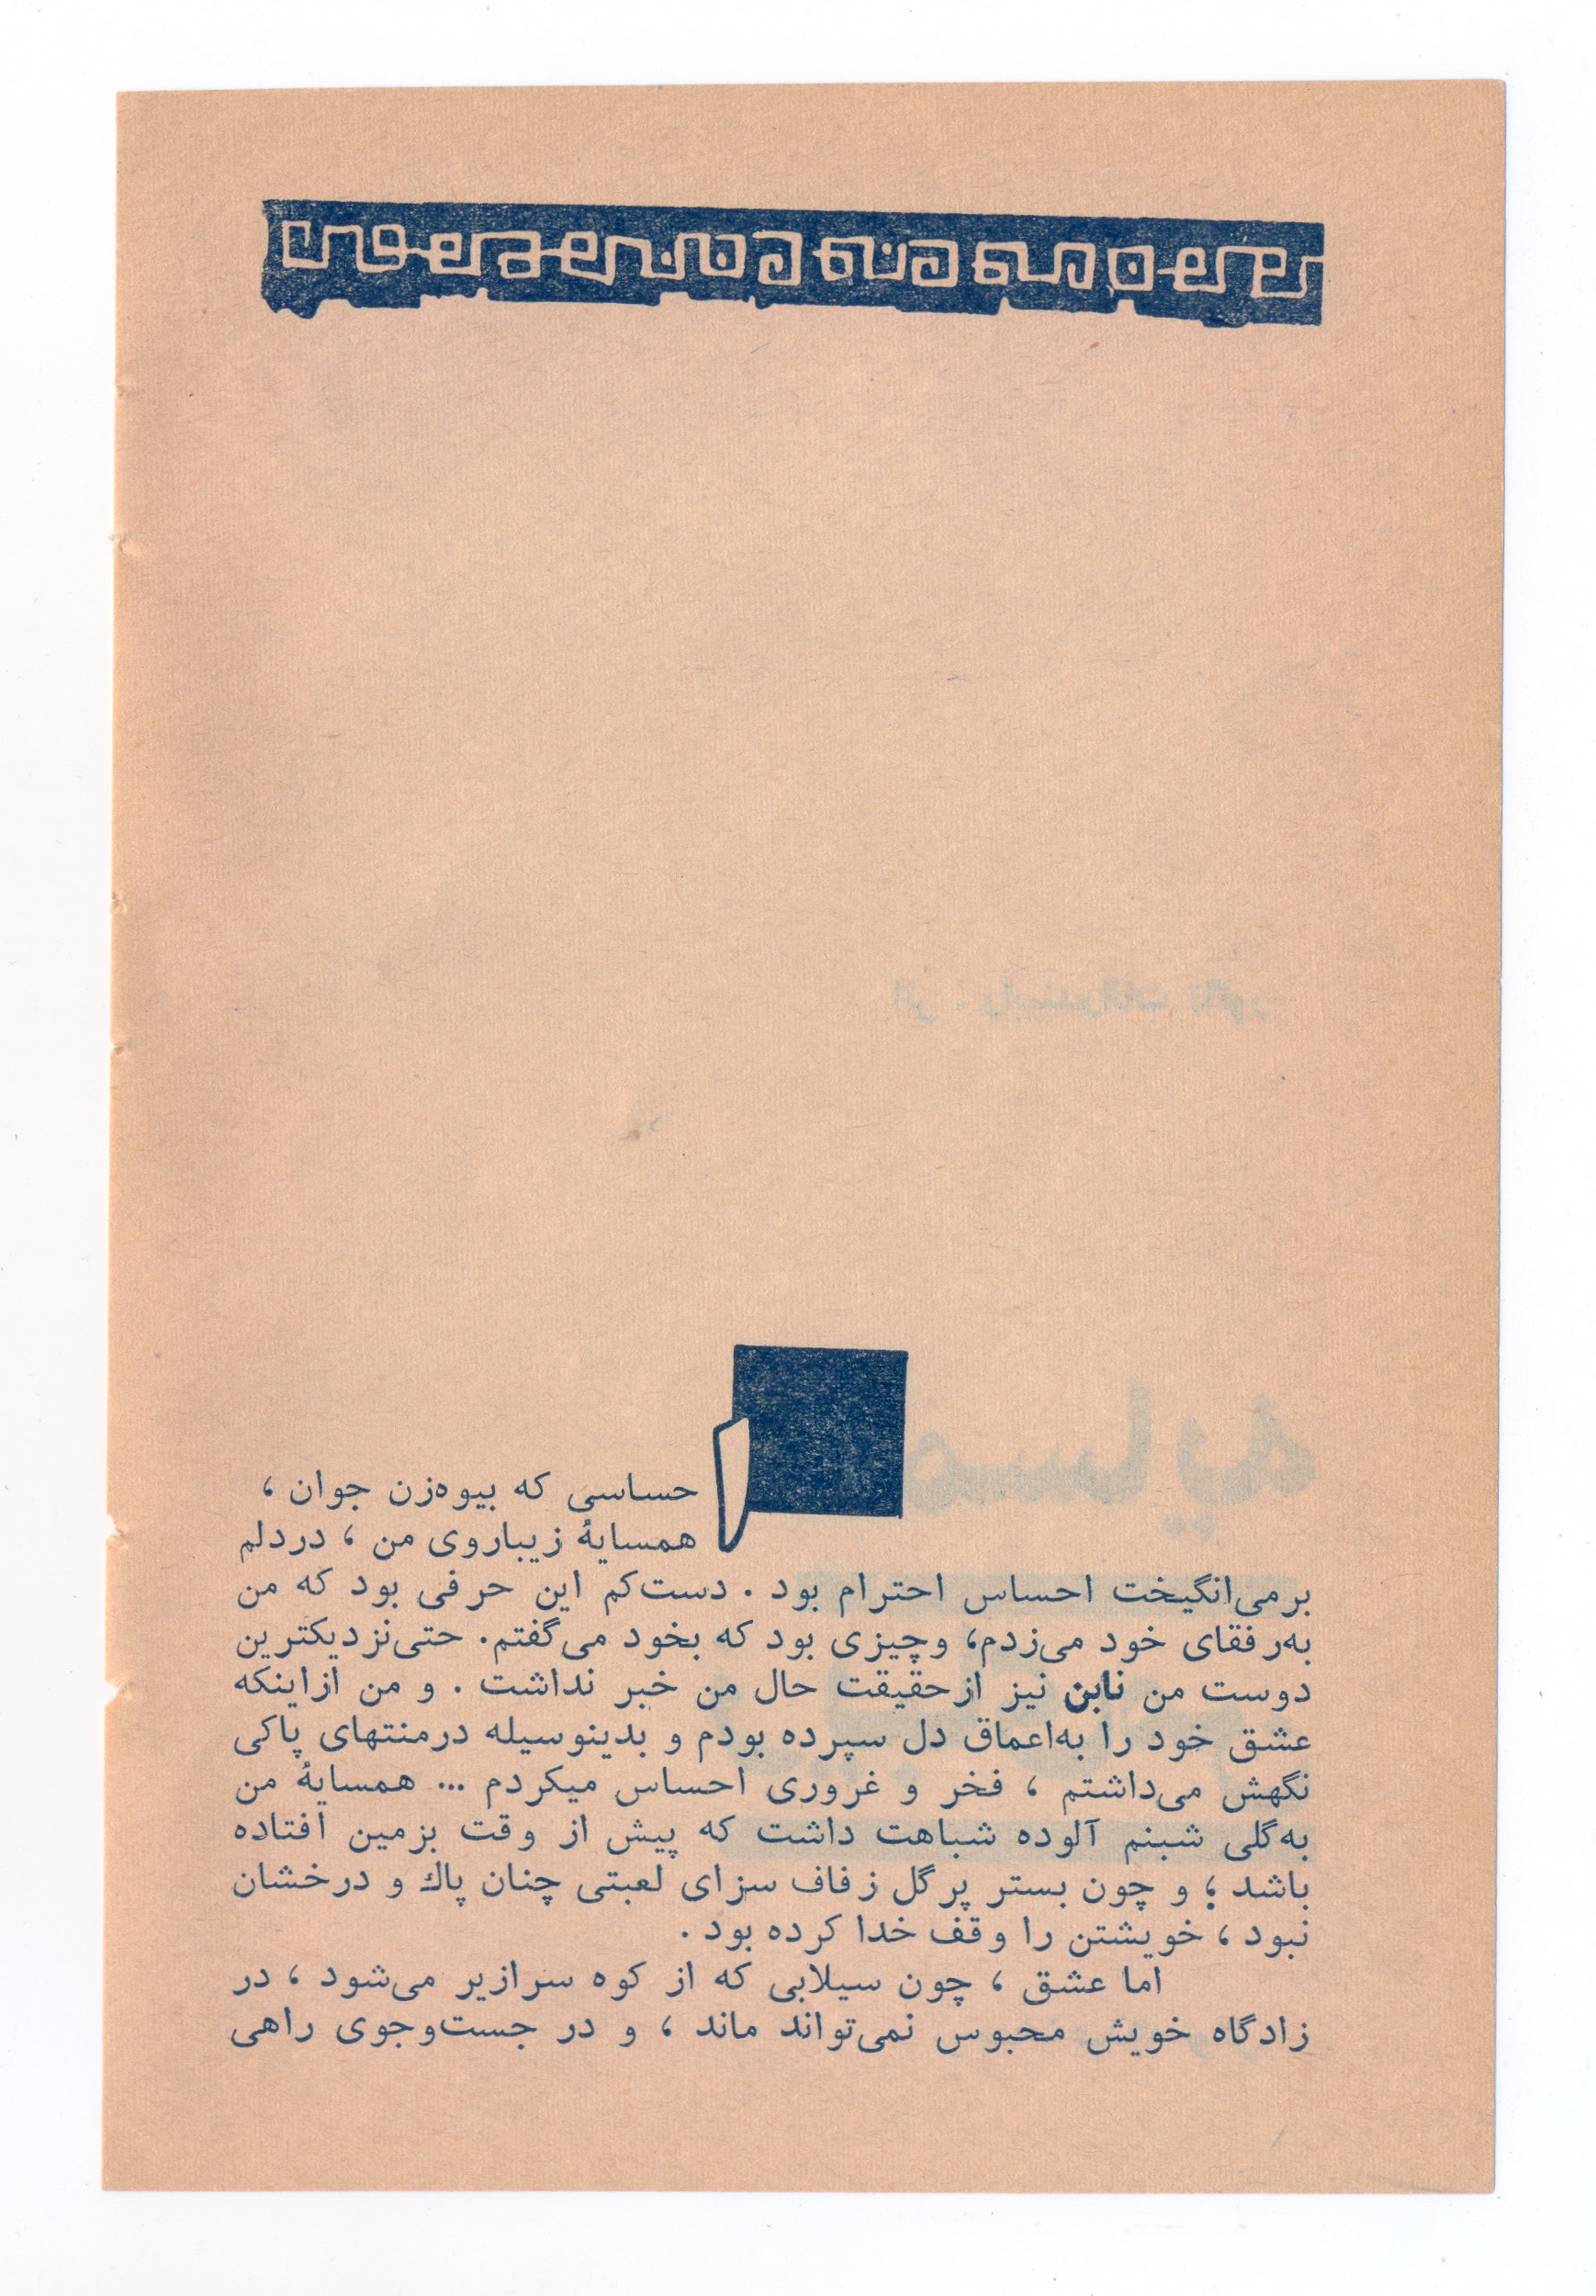 احساسی که بیوه‌زن جوان ،
همسایهٔ زیباروی من ، در دلم
برمی‌انگیخت احساس احترام بود . دست‌کم این حرفی بود که من
به‌رفقای خود می‌زدم، و چیزی بود که بخود می‌گفتم. حتی نزدیکترین
دوست من نابن نیز از حقیقت حال من خبر نداشت . و من از اینکه
عشق خود را به‌اعماق دل سپرده بودم و بدینوسیله در منتهای پاکی
نگهش می‌داشتم ، فخر و غروری احساس میکردم ... همسایهٔ من
به‌گلی شبنم آلوده شباهت داشت که پیش از وقت بزمین افتاده
باشد ؛ و چون بستر پر گل زفاف سزای لعبتی چنان پاك و درخشان
نبود ، خویشتن را وقف خدا کرده بود .
اما عشق ، چون سیلابی که از کوه سرازیر می‌شود ، در
زادگاه خویش محبوس نمی‌تواند ماند ، و در جست‌وجوی راهی